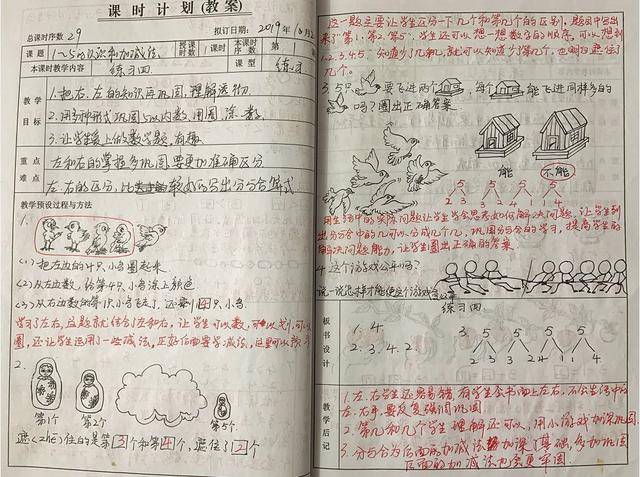 课时计划(教案)
总课课时序数 29 拟订日期:2019年10月
课题 1~5的认识和加减法 授课时数 课时 本课时序数 第
本课时教学内容 练习四 课型 练习
教学目标
1.把右、左的知识再巩固,理解透彻
2.用多种形式巩固5以内数,用圈、涂、数
3.让学生爱上做数学题,有趣
重点难点
左和右的掌握多巩固,要更加准确区分
左、右的区分,比较好的写出分与合算式
教学预设过程与方法
1.
(1)把左边的4只小鸟圈起来
(2)从左边数,给第4只小鸟涂上颜色
(3)从右边数的第1只小鸟飞走了,还剩4只小鸟
学习了左右,这题就结合了左和右,让学生可以数,可以划,可以
圈,还让学生运用了一些减法,正好后面要学减法,这里可以预习
2.
第1个 第2个 第5个
遮(zhē)住的是第3个和第4个,遮住了2个
这一题主要让学生区分一下几个和第几个的区别,题目中给出
来了“第1、第2、第5”,学生还可以想一想数字的顺序,可以想到
1、2、3、4、5,知道少了几和几,就可以知道少了第几个,也明白遮住了
几个。
3.5只 要飞进两个 ,每个 能飞进同样多的
吗?圈出正确答案
能 不能
5 5 5 5
1 4 2 3 3 2 4 1
用生活中的实际问题让学生学会思考如何解决问题,让学生列
出分与合中的几可以分成几个几,巩固分与合的学习,提高学生的
解决问题能力,让学生圈出正确的答案
4.这个游戏公平吗?
说一说怎样才能使这个游戏公平
板书设计
练习四
1. 4.
2. 3. 4. 2.
3. 5 5 5 5
2 3 3 2 4 1 1 4
教学后记
1.左、右学生还容易错,有学生会书面上左右,不会生活中的
左、右手,要反复强调巩固。
2.第几和几个学生理解还可以,用小游戏加深巩固
3.分与合为后面的加减法加深了基础,多加巩固
后面的加减法也会更牢固